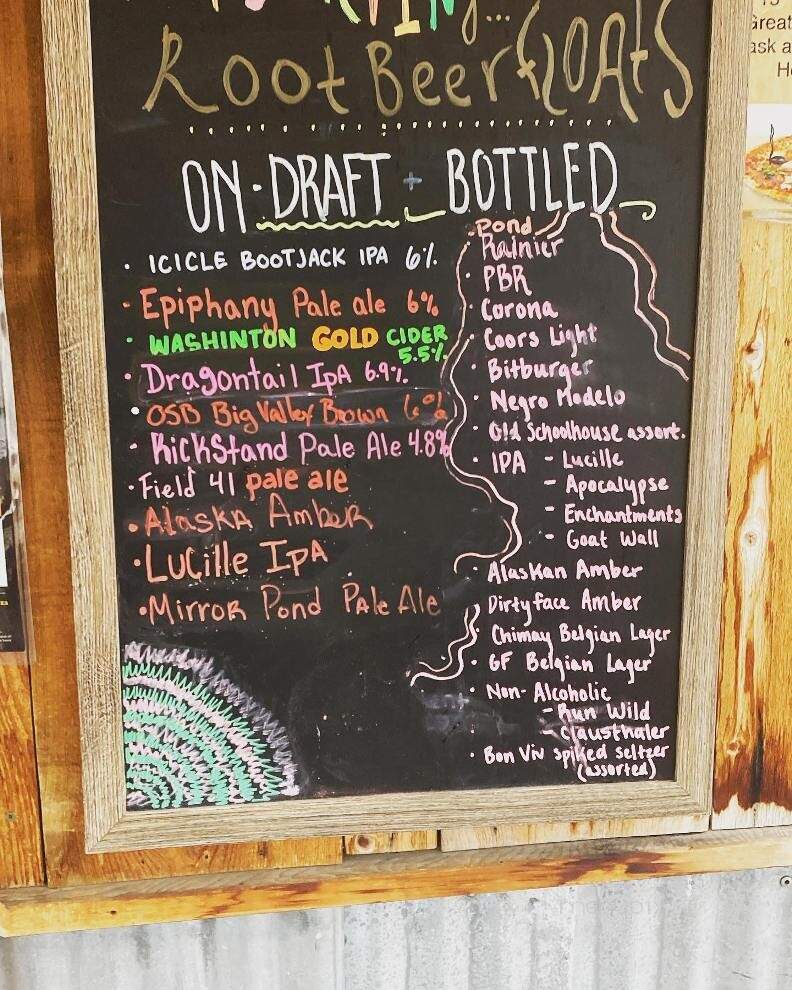 Root Beer floats
ON-DRAFT + BOTTLED
• ICICLE BOOTJACK IPA 6%
- Epiphany Pale ale 6%
• WASHINTON GOLD CIDER
5.5%
• Dragontail IpA 6.9%.
• OSB Big Valley Brown 6%
- KickStand Pale Ale 4.8%
• Field 41 pale ale
• Alaska Amber
• Lucille IpA
• Mirror Pond Pale Ale
• Pond
Rainier
• PBR
• Corona
• Coors Light
• Bitburger
• Negro Modelo
• Old Schoolhouse assort.
• IPA - Lucille
- Apocalypse
- Enchantments
- Goat Wall
• Alaskan Amber
Dirtyface Amber
Chimay Belgian Lager
• GF Belgian Lager
• Non-Alcoholic
- Run Wild
- Clausthaler
• Bon Viv spiked seltzer
(assorted)
Great
ask a